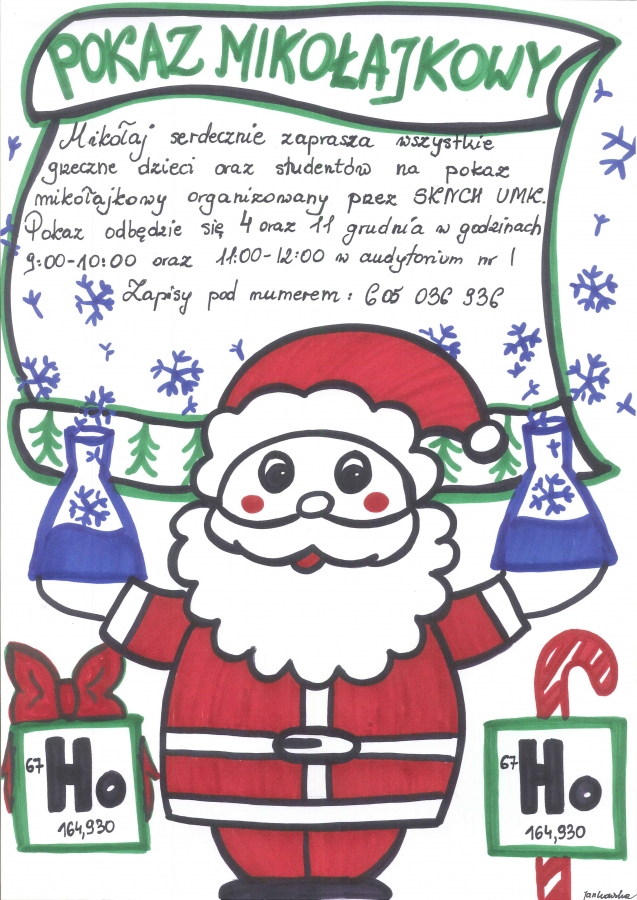 POKAZ MIKOŁAJKOWY
Mikołaj serdecznie zaprasza wszystkie
grzeczne dzieci oraz studentów na pokaz
mikołajkowy organizowany przez SKNCH UMK.
Pokaz odbędzie się 4 oraz 11 grudnia w godzinach
9:00-10:00 oraz 11:00-12:00 w audytorium nr 1
Zapisy pod numerem: 605 036 936
67
Ho
164,930
67
Ho
164,930
Jankowska